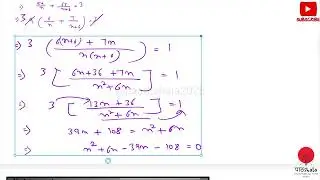 ⇒ 3 × (6/n + 7/n+6) = 1
⇒ 3 (6(n+6) + 7n / n(n+6)) = 1
⇒ 3 [6n+36 + 7n / n²+6n] = 1
⇒ 3 [13n + 36 / n²+6n] = 1
⇒ 39n + 108 = n² + 6n
⇒ n² + 6n - 39n - 108 = 0
SUBSCRIBE